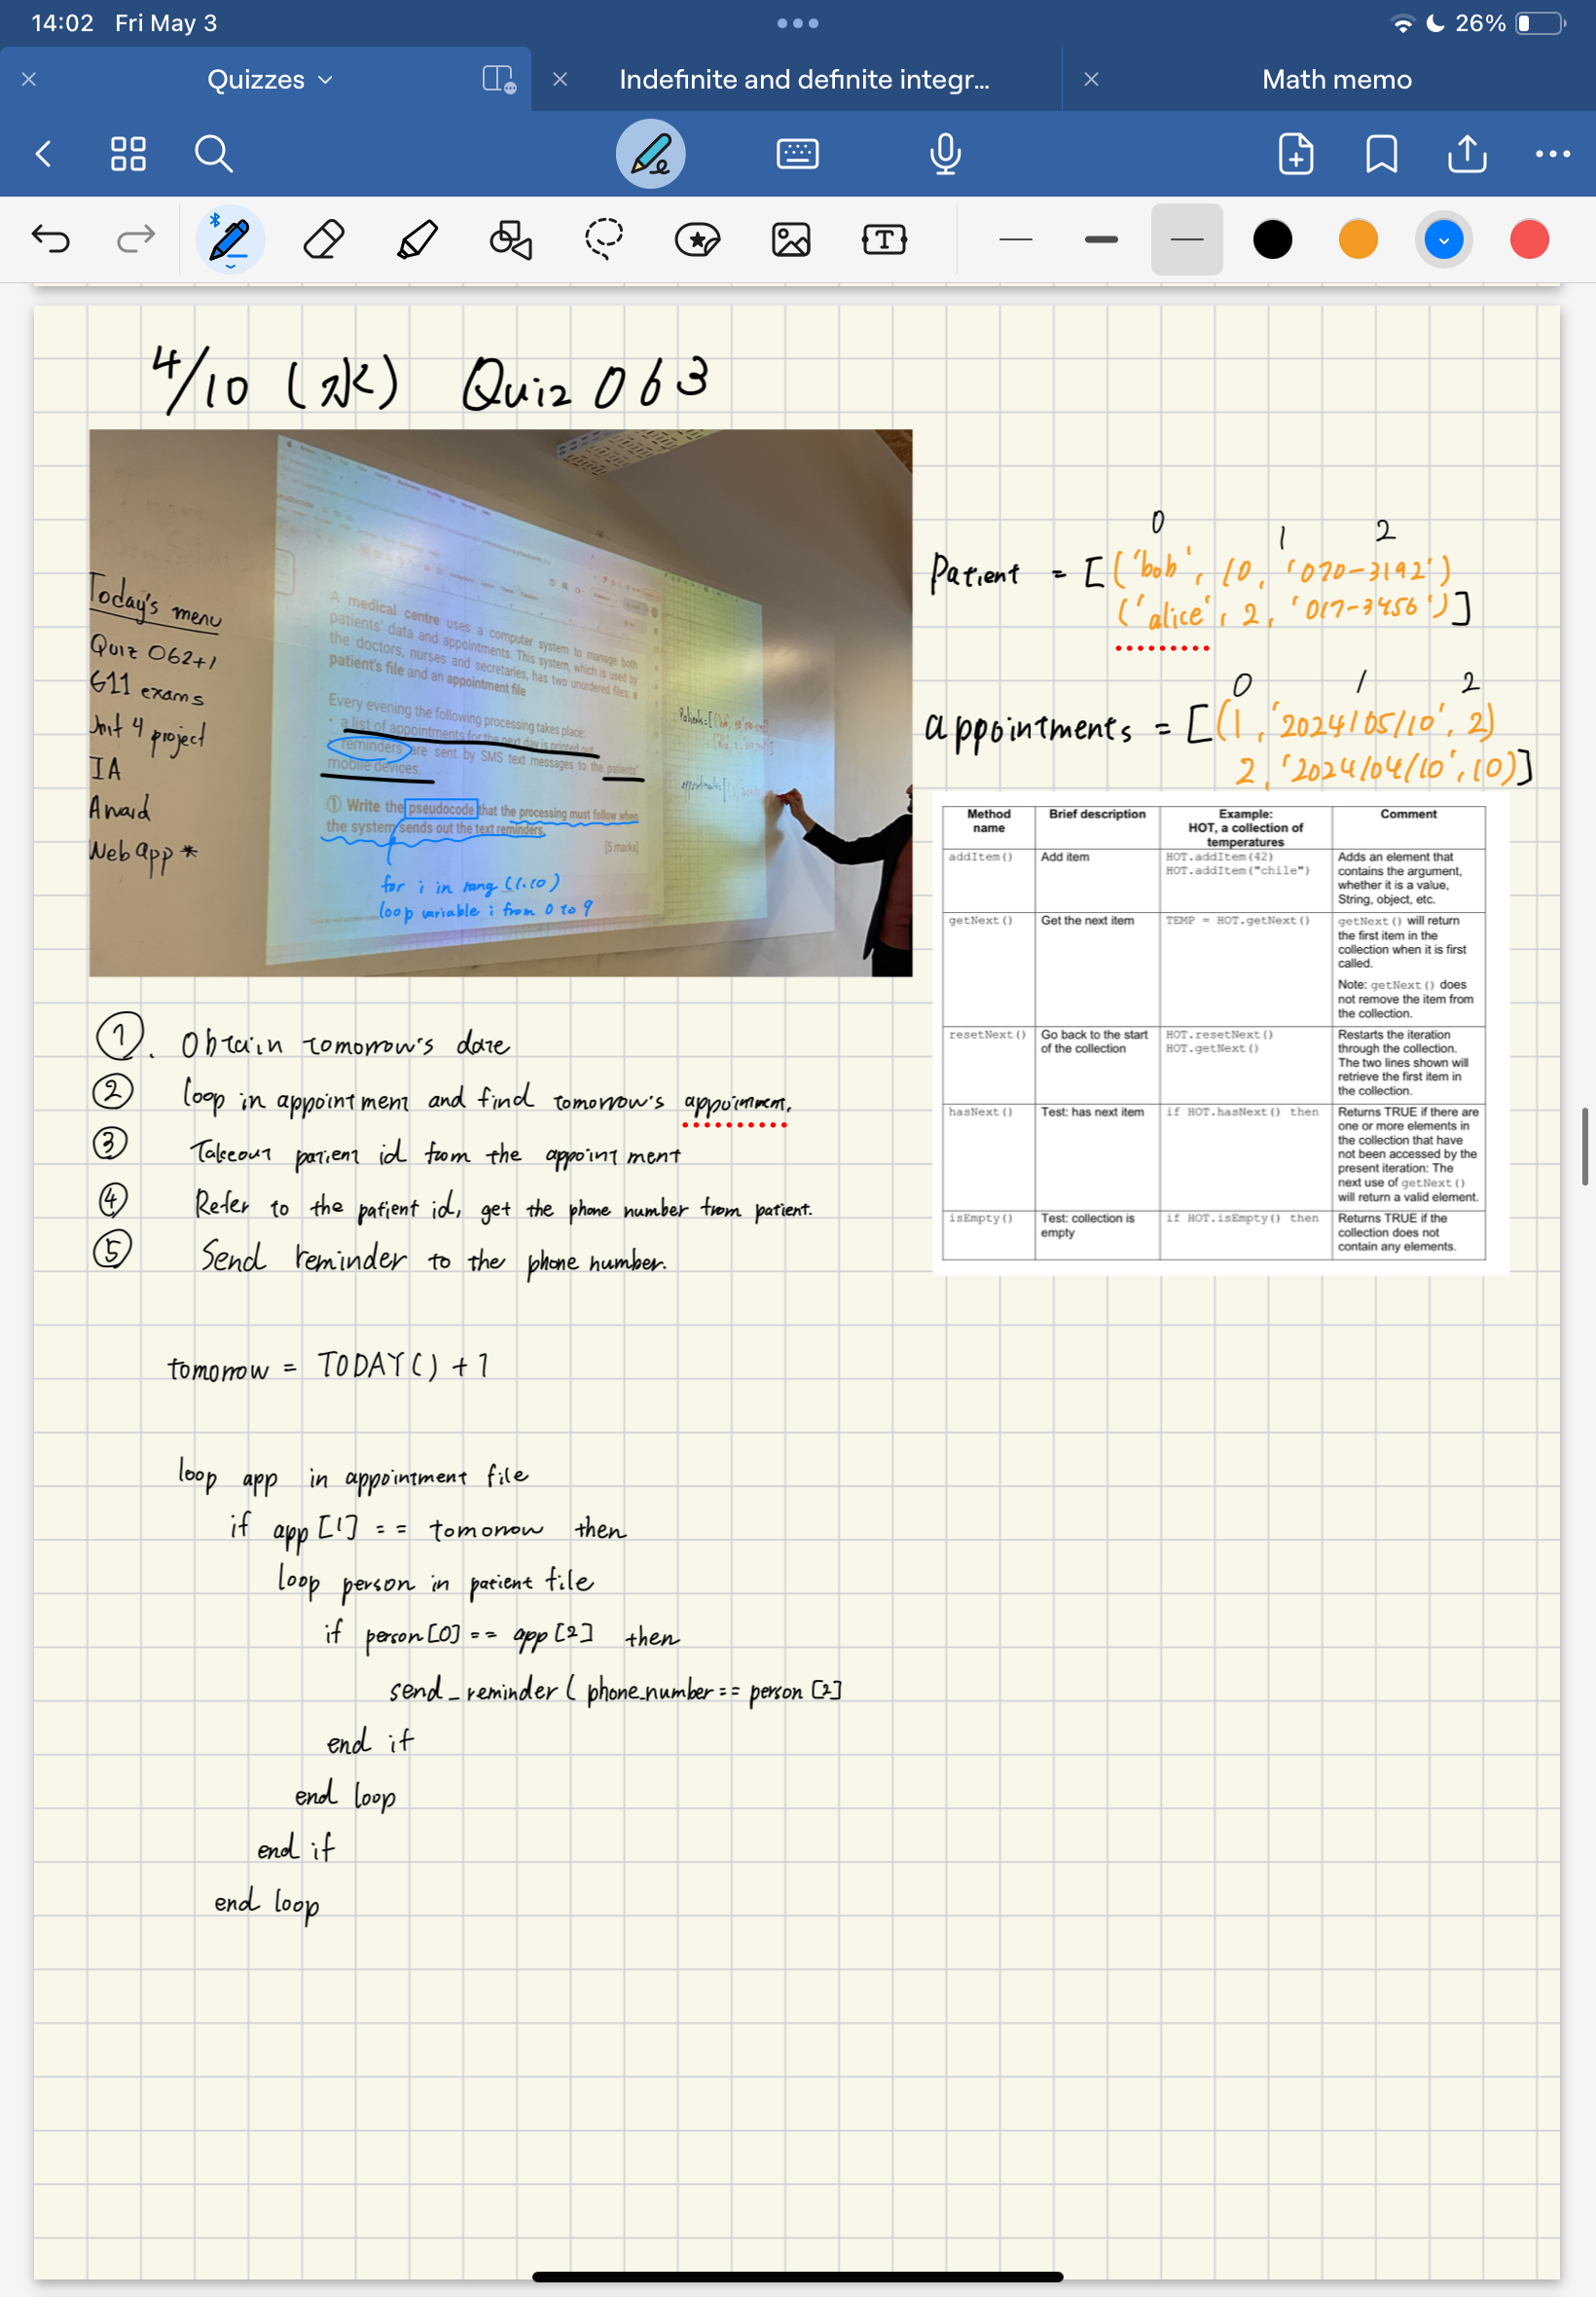 14:02 Fri May 3
26%
Quizzes
Indefinite and definite integr...
Math memo
4/10 (水) Quiz 063
Today's menu
Quiz 062+1
G11 exams
Unit 4 project
IA
Award
Web app *
A medical centre uses a computer system to manage both
patients' data and appointments. This system, which is used by
the doctors, nurses and secretaries, has two unordered files: a
patient's file and an appointment file
Every evening the following processing takes place:
• a list of appointments for the next day is printed out
reminders are sent by SMS text messages to the patients'
mobile devices.
① Write the pseudocode that the processing must follow when
the system sends out the text reminders.
[5 marks]
for i in rang (1.10)
loop variable i from 0 to 9
0 1 2
Patient = [('bob', 10, '070-3192')
('alice', 2, '017-3456')]
0 1 2
appointments = [(1, '2024/05/10', 2)
2, '2024/04/10', 10)]
Method name
Brief description
Example: HOT, a collection of temperatures
Comment
addItem()
Add item
HOT.addItem(42)
HOT.addItem("chile")
Adds an element that
contains the argument,
whether it is a value,
String, object, etc.
getNext()
Get the next item
TEMP = HOT.getNext()
getNext() will return
the first item in the
collection when it is first
called.
Note: getNext() does
not remove the item from
the collection.
resetNext()
Go back to the start
of the collection
HOT.resetNext()
HOT.getNext()
Restarts the iteration
through the collection.
The two lines shown will
retrieve the first item in
the collection.
hasNext()
Test: has next item
if HOT.hasNext() then
Returns TRUE if there are
one or more elements in
the collection that have
not been accessed by the
present iteration: The
next use of getNext()
will return a valid element.
isEmpty()
Test: collection is
empty
if HOT.isEmpty() then
Returns TRUE if the
collection does not
contain any elements.
①. Obtain tomorrow's date
② loop in appointment and find tomorrow's appoinment.
③ Takeout patient id from the appointment
④ Refer to the patient id, get the phone number from patient.
⑤ Send reminder to the phone number.
tomorrow = TODAY() + 1
loop app in appointment file
if app[1] == tomorrow then
loop person in patient file
if person[0] == app[2] then
send_reminder( phone_number == person[2]
end if
end loop
end if
end loop